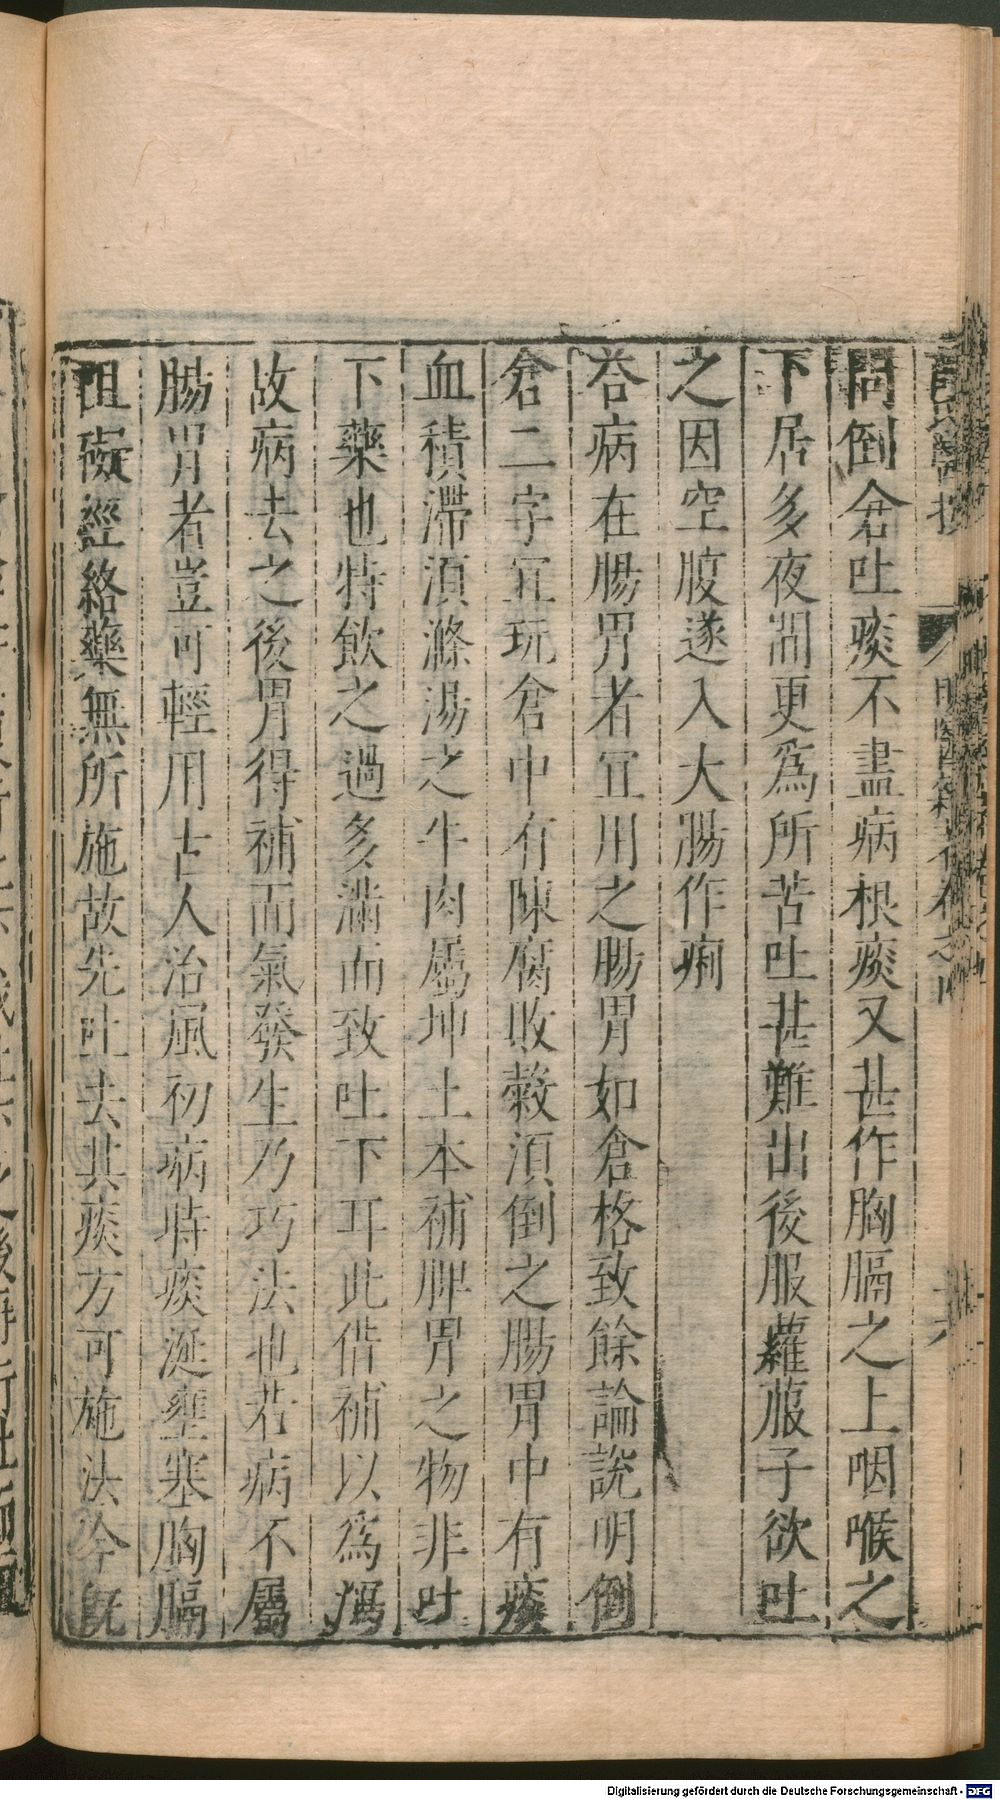 問倒倉吐痰不盡病根痰又甚作胸膈之上咽喉之
下居多夜間更爲所苦吐甚難出後服蘿菔子欲吐
之因空腹遂入大腸作痢
荅病在腸胃者宜用之腸胃如倉格致餘論說明倒
倉二字宜玩倉中有陳腐敗穀須倒之腸胃中有痰
血積滯須滌湯之牛肉屬坤土本補脾胃之物非吐
下藥也特飲之過多滿而致吐下耳此借補以爲㵼
故病去之後胃得補而氣發生乃巧法也若病不屬
腸胃者豈可輕用古人治風初病時痰涎壅塞胸膈
阻礙經絡藥無所施故先吐去其痰方可施法今旣
明醫雜著卷之四
Digitalisierung gefördert durch die Deutsche Forschungsgemeinschaft - DFG